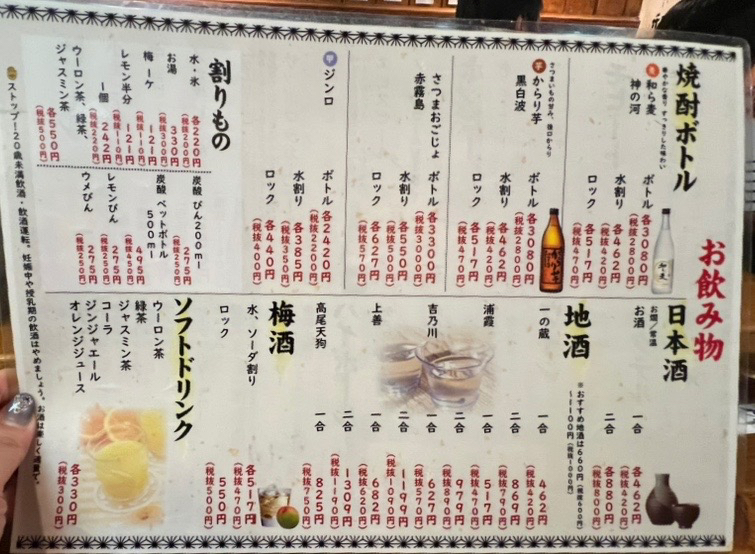 お飲み物
焼酎ボトル
麦 和ら麦
華やかな香り すっきりした味わい
神の河
ボトル 各3080円
(税抜2800円)
水割り 各462円
(税抜420円)
ロック 各517円
(税抜470円)
芋 からり芋
さつまいもの甘み、後口からり
黒白波
ボトル 各3080円
(税抜2800円)
水割り 各462円
(税抜420円)
ロック 各517円
(税抜470円)
さつまおごじょ
赤霧島
ボトル 各3300円
(税抜3000円)
水割り 各550円
(税抜500円)
ロック 各627円
(税抜570円)
甲 ジンロ
ボトル 各2420円
(税抜2200円)
水割り 各385円
(税抜350円)
ロック 各440円
(税抜400円)
割りもの
水・氷 各220円
(税抜200円)
お湯 330円
(税抜300円)
梅一ケ 121円
(税抜110円)
レモン半分 121円
(税抜110円)
一個 242円
(税抜220円)
ウーロン茶、緑茶、
ジャスミン茶 各550円
(税抜500円)
炭酸 びん200ml 275円
(税抜250円)
炭酸 ペットボトル
500ml 495円
(税抜450円)
レモンびん 275円
(税抜250円)
ウメびん 275円
(税抜250円)
日本酒
お燗/常温
お酒 一合 各462円
(税抜420円)
二合 各880円
(税抜800円)
地酒
※おすすめ地酒は660円(税抜600円)
~1100円(税抜1000円)
一の蔵 一合 462円
(税抜420円)
二合 869円
(税抜790円)
浦霞 一合 517円
(税抜470円)
二合 979円
(税抜890円)
吉乃川 一合 627円
(税抜570円)
二合 1199円
(税抜1090円)
上善 一合 682円
(税抜620円)
二合 1309円
(税抜1190円)
高尾天狗 一合 825円
(税抜750円)
梅酒
水、ソーダ割り 各517円
(税抜470円)
ロック 550円
(税抜500円)
ソフトドリンク
ウーロン茶
緑茶
ジャスミン茶
コーラ
ジンジャエール
オレンジジュース
各330円
(税抜300円)
ストップ!20歳未満飲酒・飲酒運転。妊娠中や授乳期の飲酒はやめましょう。お酒は楽しく適量で。